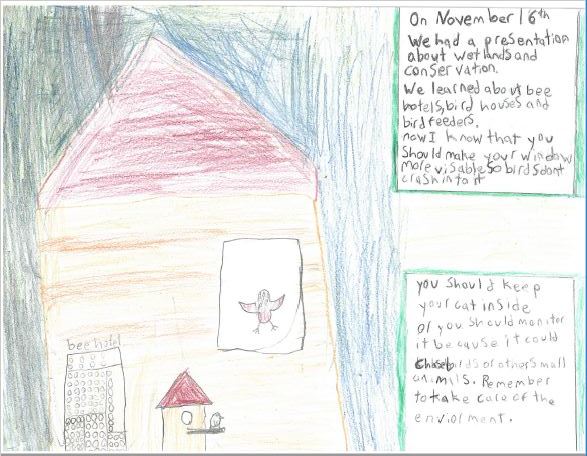 On November 16th
We had a presentation
about wetlands and
conservation.
We learned about bee
hotels, bird houses and
bird feeders.
now I know that you
Should make your window
more visable so birds dont
crash into it
you Should keep
your cat inside
or you should monitor
it because it could
Chase birds or other small
animals. Remember
to take care of the
enviorment.
bee hotel